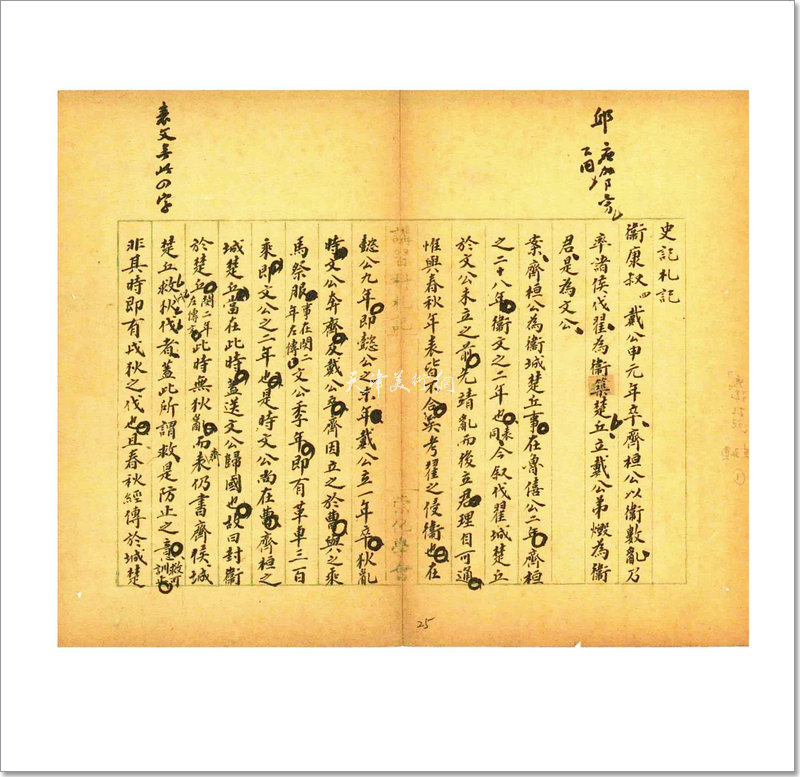 史記札記
衞康叔四 戴公申元年卒齊桓公以衞數亂乃
率諸侯伐翟為衞築楚丘立戴公弟燬為衞
君是為文公
案齊桓公為衞城楚丘事在魯僖公二年齊桓
之二十八年衞文之二年也表同今叙伐翟城楚丘
於文公未立之前先靖亂而後立君理自可通
惟與春秋年表皆不合矣考翟之侵衞也在
懿公九年即懿公之末年戴公立一年卒狄亂
時文公奔齊及戴公卒齊因立之於曹與之乘
馬祭服事在閔二年左傳文公季年即有革車三百
乘即文公之二年也是時文公尚在曹齊桓之
城楚丘當在此時蓋送文公歸國也故曰封衞
於楚丘閔二年左傳此時無狄亂而表仍書齊侯城
楚丘救狄伐者蓋此所謂救是防止之意救可訓止
非其時即有戌狄之伐也且春秋經傳於城楚
表文無此四字
邱
25
天津美術網